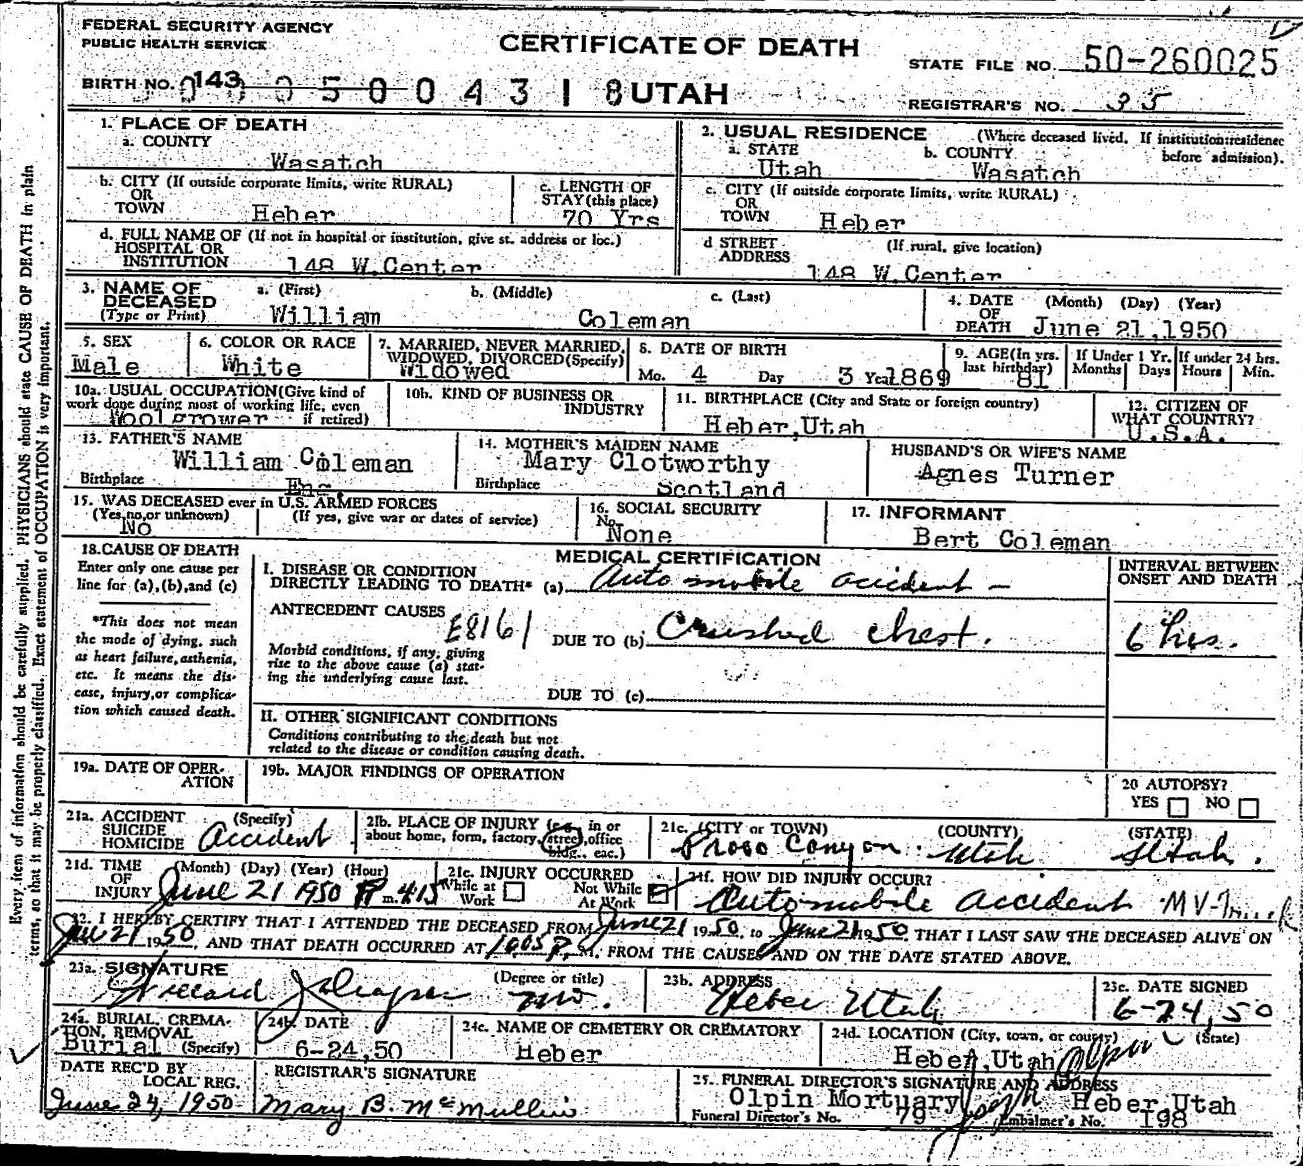 FEDERAL SECURITY AGENCY
PUBLIC HEALTH SERVICE
CERTIFICATE OF DEATH
STATE FILE NO. 50-260025
BIRTH NO. 143 0 0 5 0 0 4 3 1 8 UTAH
REGISTRAR'S NO. 35
1. PLACE OF DEATH
a. COUNTY
Wasatch
2. USUAL RESIDENCE (Where deceased lived. If institution: residence before admission).
a. STATE Utah
b. COUNTY Wasatch
b. CITY (If outside corporate limits, write RURAL)
OR
TOWN Heber
c. LENGTH OF
STAY (this place)
70 Yrs
c. CITY (If outside corporate limits, write RURAL)
OR
TOWN Heber
d. FULL NAME OF (If not in hospital or institution, give st. address or loc.)
HOSPITAL OR
INSTITUTION 148 W.Center
d STREET (If rural, give location)
ADDRESS 148 W.Center
3. NAME OF
DECEASED
(Type or Print)
a. (First) b. (Middle) c. (Last)
William Coleman
4. DATE (Month) (Day) (Year)
OF
DEATH June 21,1950
5. SEX
Male
6. COLOR OR RACE
White
7. MARRIED, NEVER MARRIED,
WIDOWED, DIVORCED (Specify)
Widowed
8. DATE OF BIRTH
Mo. 4 Day 3 Year 1869
9. AGE (In yrs.
last birthday)
81
If Under 1 Yr.
Months Days
If under 24 hrs.
Hours Min.
10a. USUAL OCCUPATION (Give kind of
work done during most of working life, even
if retired)
Wool grower
10b. KIND OF BUSINESS OR
INDUSTRY
11. BIRTHPLACE (City and State or foreign country)
Heber,Utah
12. CITIZEN OF
WHAT COUNTRY?
U.S.A.
13. FATHER'S NAME
William Coleman
Birthplace Eng.
14. MOTHER'S MAIDEN NAME
Mary Clotworthy
Birthplace Scotland
HUSBAND'S OR WIFE'S NAME
Agnes Turner
15. WAS DECEASED ever in U.S. ARMED FORCES
(Yes, no, or unknown) (If yes, give war or dates of service)
No
16. SOCIAL SECURITY
No.
None
17. INFORMANT
Bert Coleman
18. CAUSE OF DEATH
Enter only one cause per
line for (a), (b), and (c)
*This does not mean
the mode of dying, such
as heart failure, asthenia,
etc. It means the dis-
ease, injury, or complica-
tion which caused death.
MEDICAL CERTIFICATION
I. DISEASE OR CONDITION
DIRECTLY LEADING TO DEATH* (a) Automobile accident -
ANTECEDENT CAUSES
E8161
DUE TO (b) Crushed chest.
Morbid conditions, if any, giving
rise to the above cause (a) stat-
ing the underlying cause last.
DUE TO (c)
INTERVAL BETWEEN
ONSET AND DEATH
6 hrs.
II. OTHER SIGNIFICANT CONDITIONS
Conditions contributing to the death but not
related to the disease or condition causing death.
19a. DATE OF OPER-
ATION
19b. MAJOR FINDINGS OF OPERATION
20 AUTOPSY?
YES NO
21a. ACCIDENT (Specify)
SUICIDE
HOMICIDE Accident
21b. PLACE OF INJURY (e.g. in or
about home, form, factory, street, office
bldg., eac.)
21c. (CITY or TOWN) (COUNTY) (STATE)
Provo Canyon Utah Utah.
21d. TIME (Month) (Day) (Year) (Hour)
OF
INJURY June 21 1950 P m. 4:15
21e. INJURY OCCURRED
While at Work Not While At Work
21f. HOW DID INJURY OCCUR?
Automobile accident MV-Truck
22. I HEREBY CERTIFY THAT I ATTENDED THE DECEASED FROM June 21 1950, to June 21 1950 THAT I LAST SAW THE DECEASED ALIVE ON
June 21 1950, AND THAT DEATH OCCURRED AT 10:05 P. M. FROM THE CAUSES AND ON THE DATE STATED ABOVE.
23a. SIGNATURE (Degree or title)
M.D.
23b. ADDRESS
Heber Utah
23c. DATE SIGNED
6-24, 50
24a. BURIAL, CREMA-
TION, REMOVAL
(Specify)
Burial
24b. DATE
6-24,50
24c. NAME OF CEMETERY OR CREMATORY
Heber
24d. LOCATION (City, town, or county) (State)
Heber,Utah
DATE REC'D BY
LOCAL REG.
June 24, 1950
REGISTRAR'S SIGNATURE
Mary B. McMullin
25. FUNERAL DIRECTOR'S SIGNATURE AND ADDRESS
Joseph Olpin
Olpin Mortuary Heber Utah
Funeral Director's No. 79 Embalmer's No. 198
Every item of information should be carefully supplied. PHYSICIANS should state CAUSE OF DEATH in plain
terms, so that it may be properly classified. Exact statement of OCCUPATION is very important.